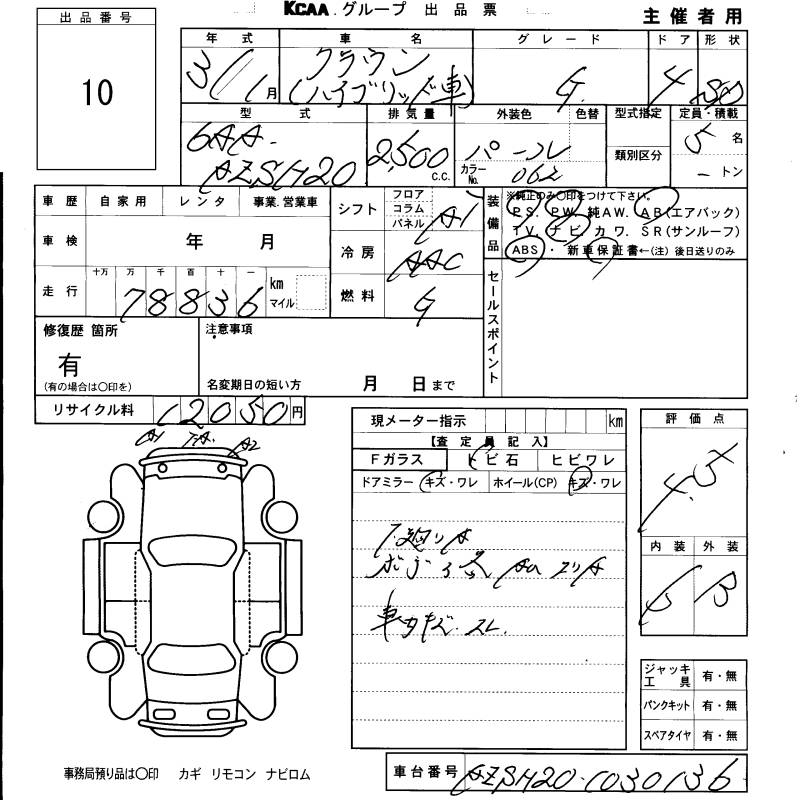 KCAA グループ 出品票
主催者用
出品番号
10
年式 車名 グレード ドア 形状
3/1月 クラウン(ハイブリッド車) G 4 SD
型式 排気量 外装色 色替 型式指定 定員・積載
6AA-AZSH20 2,500 c.c. パール カラーNo. 062 類別区分 5名 －トン
車歴 自家用 レンタ 事業.営業車
車検 年 月
走行 十万 万 千 百 十 一
78836 km マイル
シフト フロア コラム パネル AT
冷房 AAC
燃料 G
装備品 ※純正のみ〇印をつけて下さい。
P.S. P.W. 純A.W. A.B(エアバック)
T.V. ナビ. カワ. S.R(サンルーフ)
ABS・新車保証書←(注)後日送りのみ
セールスポイント
修復歴 箇所
有
(有の場合は〇印を)
注意事項
名変期日の短い方 月 日まで
リサイクル料 12050円
A1 A2
現メーター指示 km
【査定員記入】
Fガラス トビ石 ヒビワレ
ドアミラー キズ・ワレ ホイール(CP) キズ・ワレ
車内キズ・スレ
評価点
4.5
内装 外装
B
ジャッキ工具 有・無
パンクキット 有・無
スペアタイヤ 有・無
事務局預り品は〇印 カギ リモコン ナビロム
車台番号 AZSH20-1030136